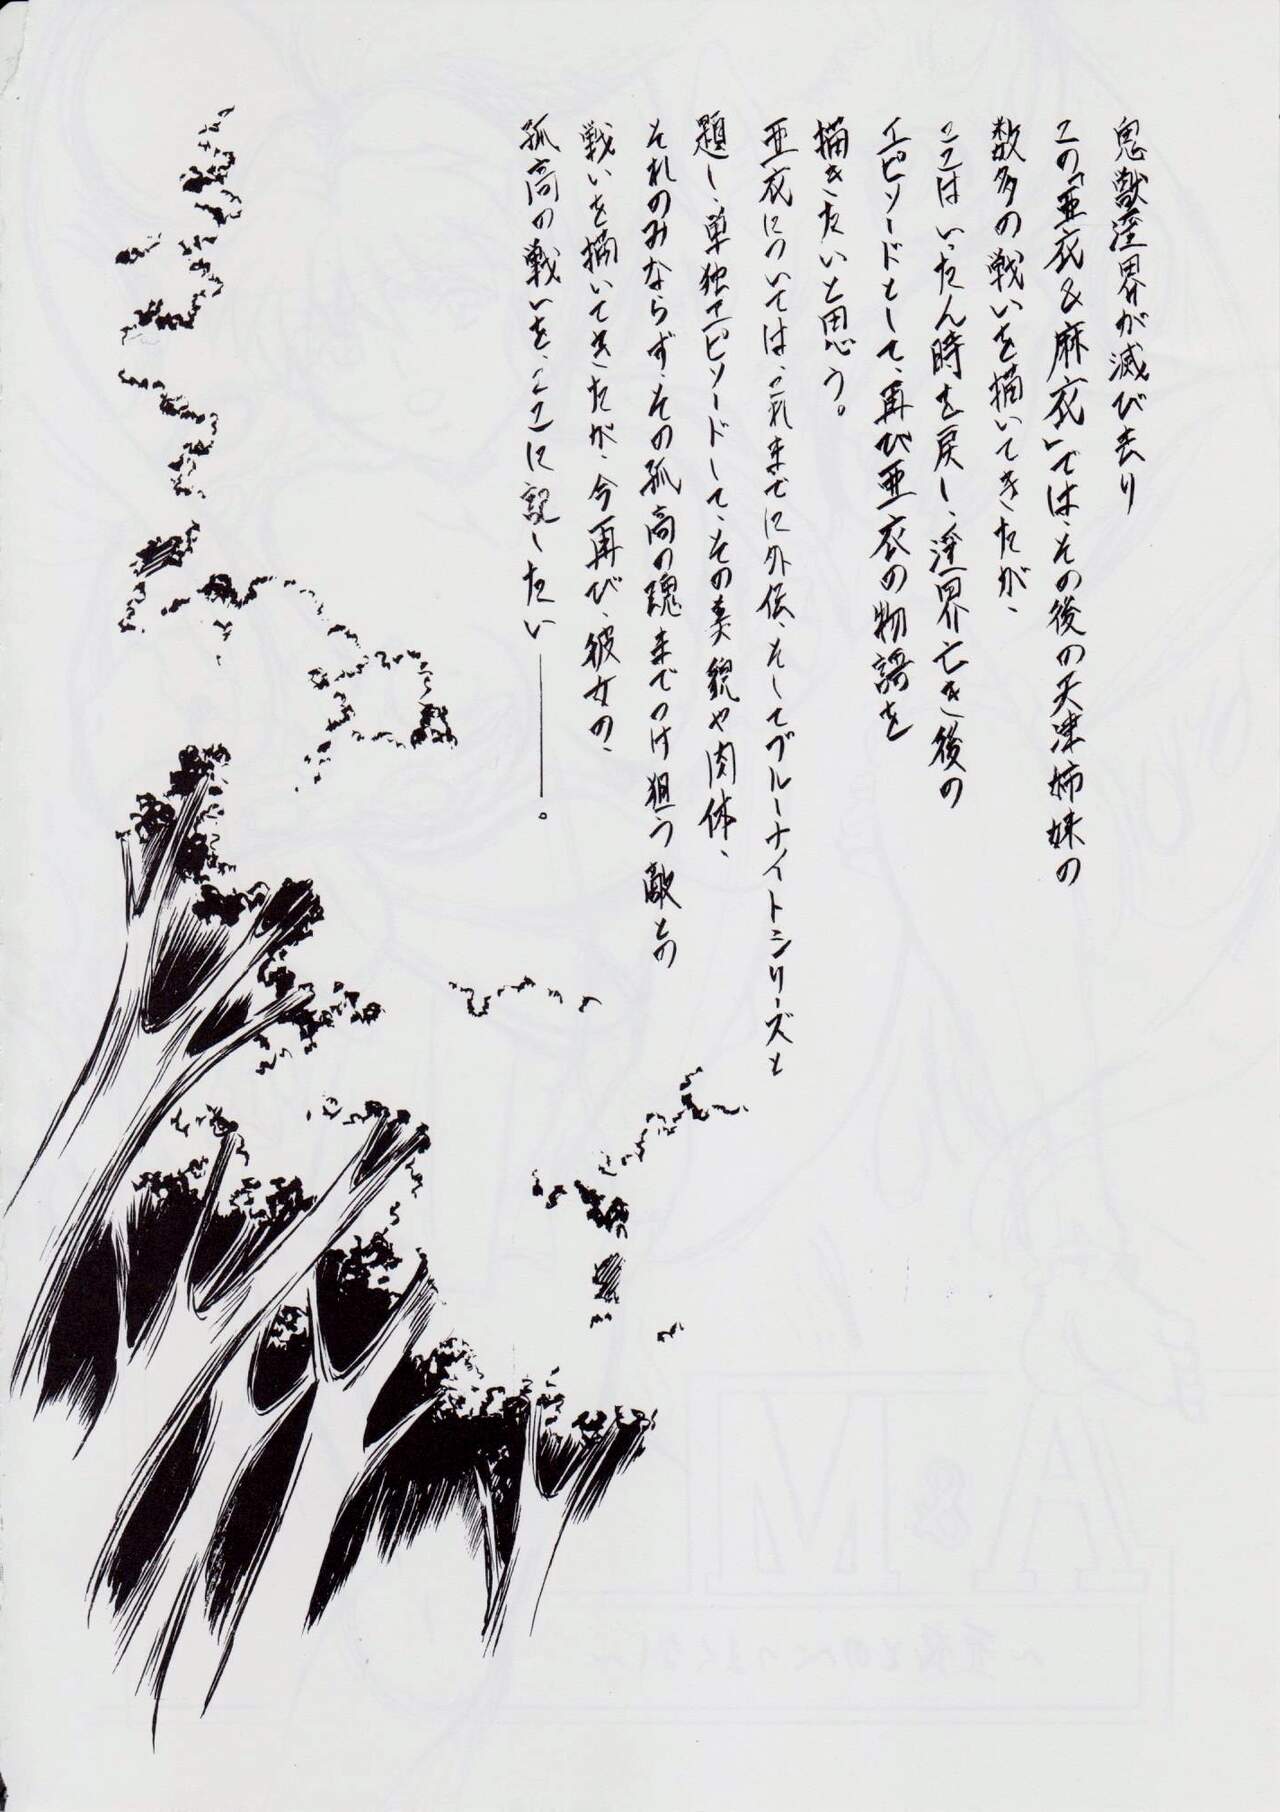 鬼獣淫界が滅び去り
この「亜衣＆麻衣」では、その後の天津姉妹の
数多の戦いを描いてきたが、
ここはいったん時を戻し、淫界亡き後の
エピソードとして、再び亜衣の物語を
描きたいと思う。
亜衣については、これまでに外伝、そしてブルーナイトシリーズと
題し、単独エピソードして、その美貌や肉体、
それのみならず、その孤高の魂までつけ狙う敵との
戦いを描いてきたが、今再び、彼女の、
孤高の戦いを、ここに記したい―――。
A&M